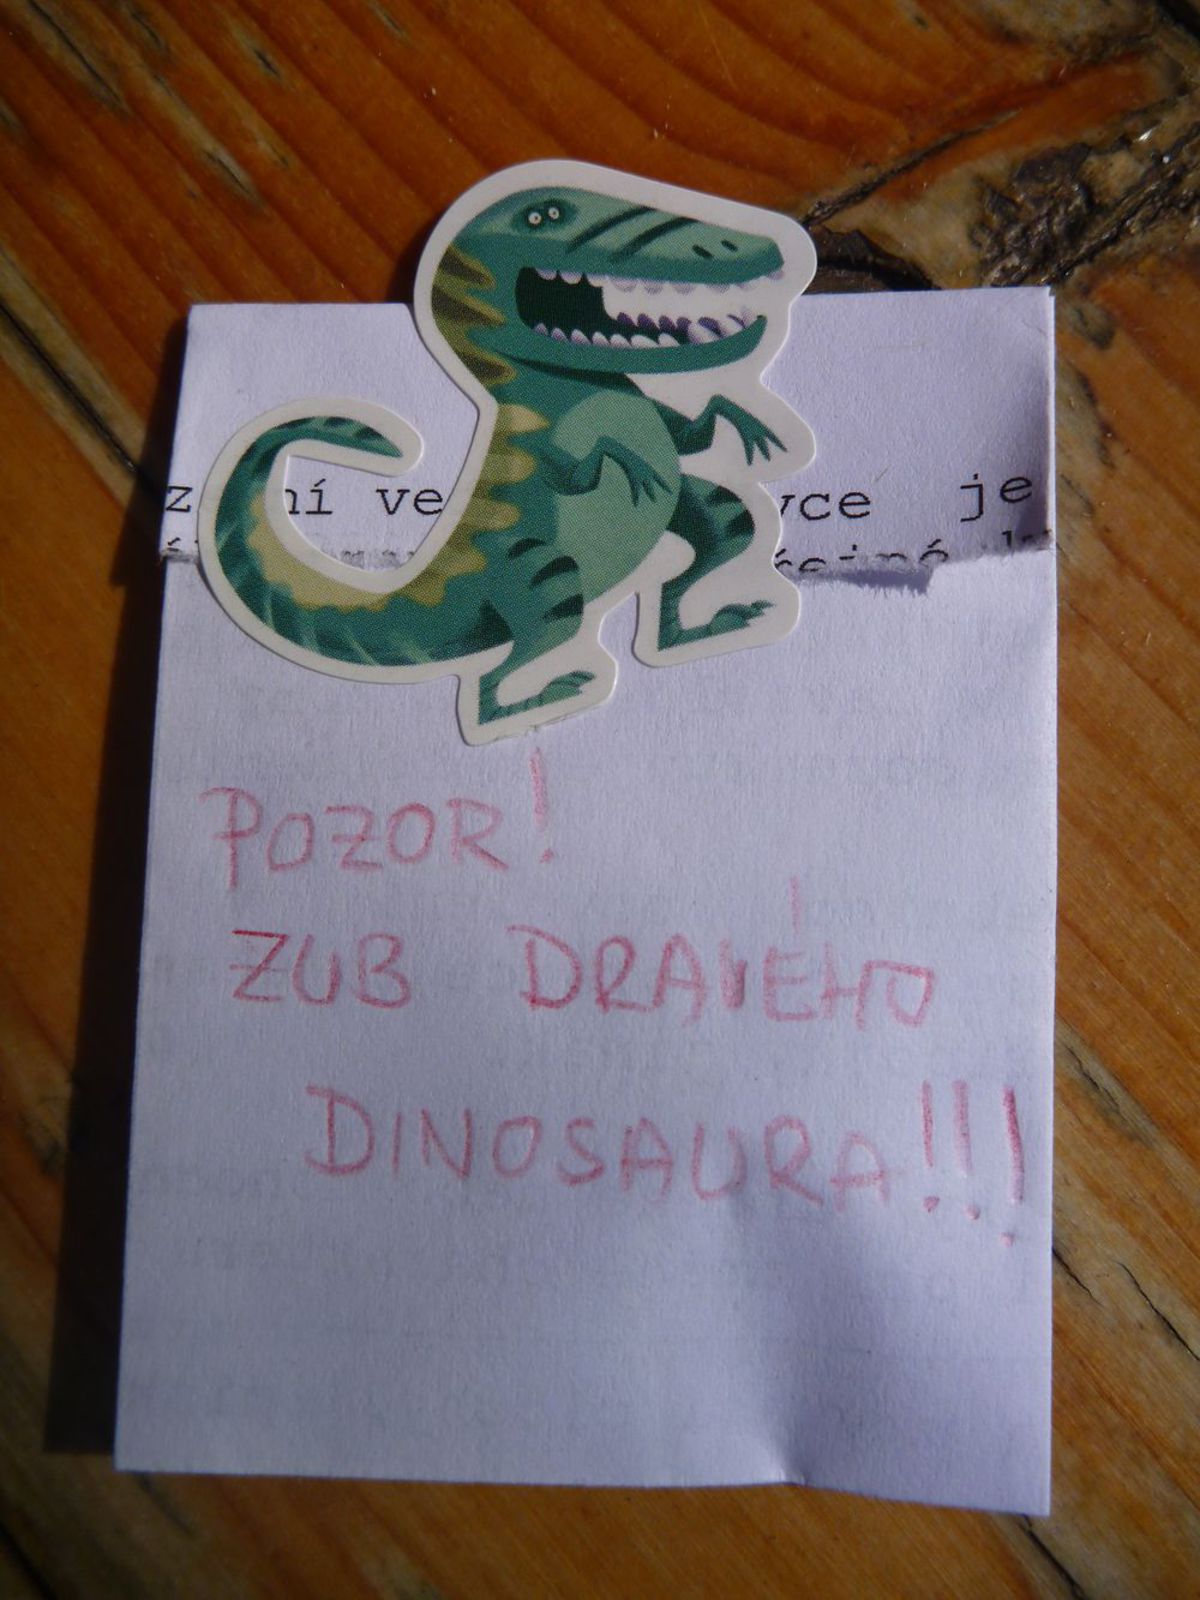 ní ve je
POZOR!
ZUB DRAVÉHO
DINOSAURA!!!